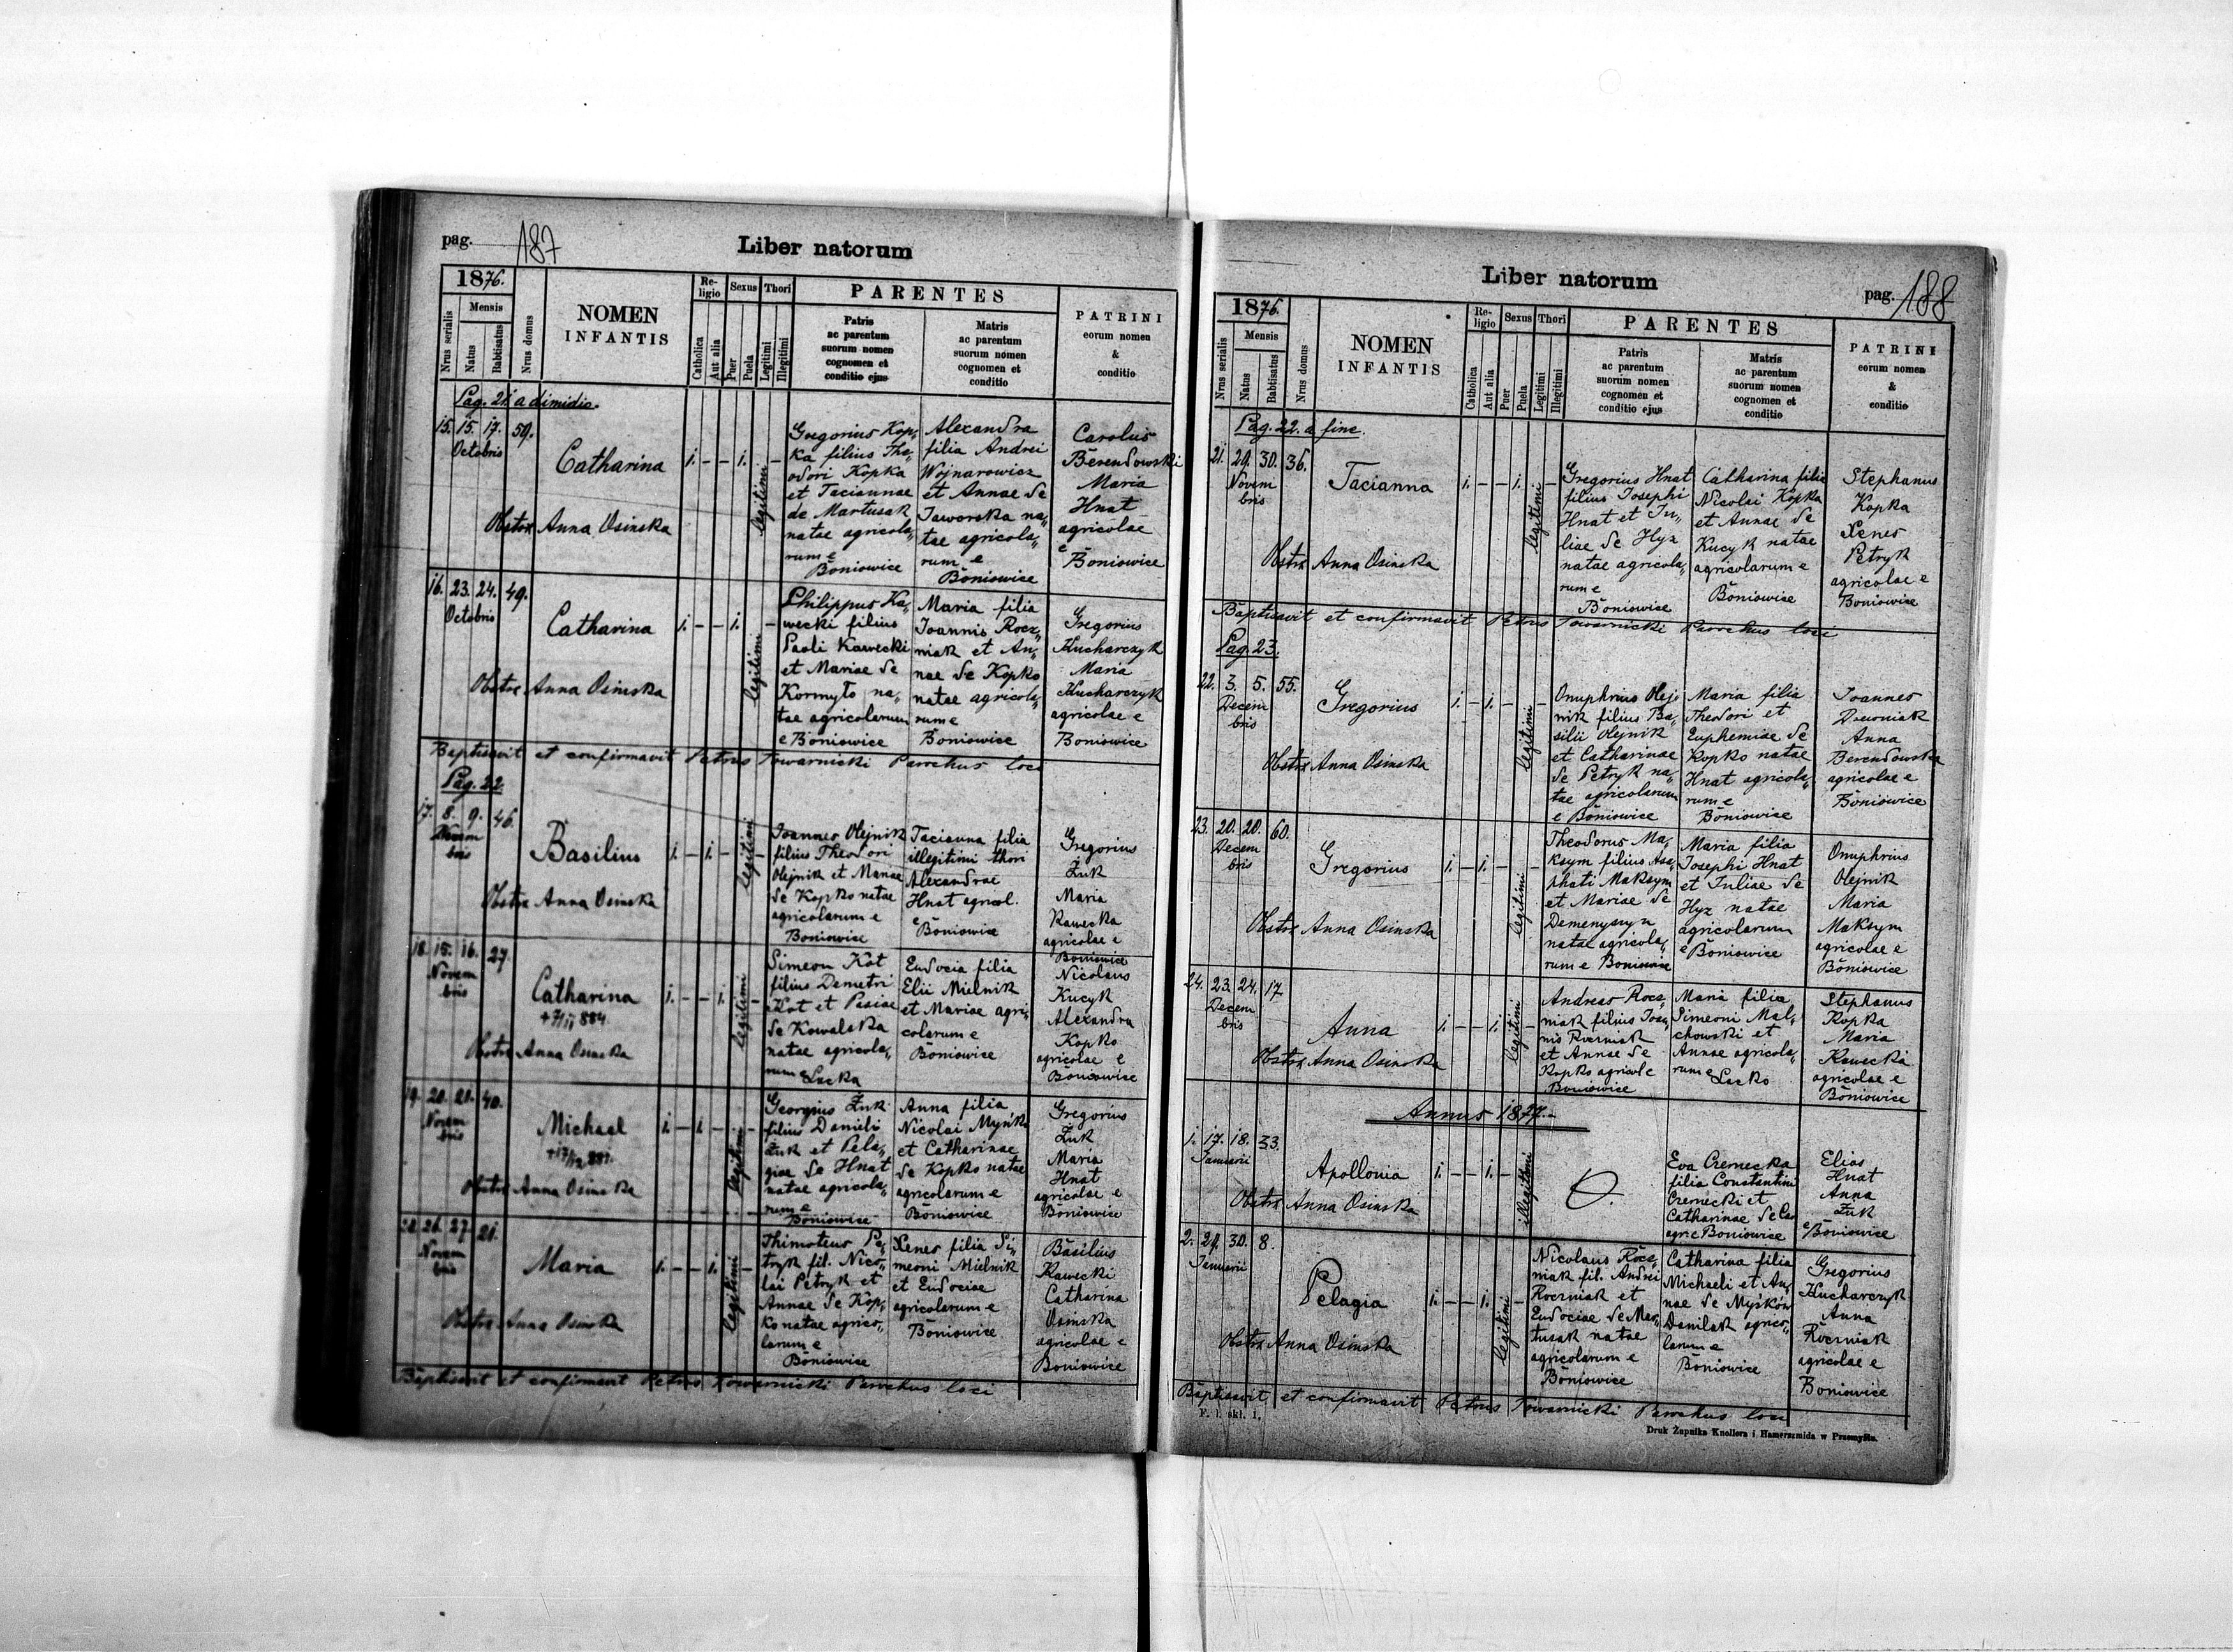 pag. 187
Liber natorum
1876.
Mensis
Nrus serialis
Natus
Babtisatus
Nrus domus
NOMEN
INFANTIS
Re-
ligio
Catholica
Aut alia
Sexus
Puer
Puela
Thori
Legitimi
Illegitimi
PARENTES
Patris
ac parentum
suorum nomen
cognomen et
conditio ejus
Matris
ac parentum
suorum nomen
cognomen et
conditio
PATRINI
eorum nomen
&
conditio
Pag. 21. a dimidio.
15. 15. 17. 59.
Octobris
Catharina
Obstrx Anna Osinska
1. – – 1. –
legitimi
Gregorius Kop„
ka filius The„
odori Kopka
et Taciannae
de Martusak
natae agricola„
rum e
Boniowice
Alexandra
filia Andrei
Wojnarowicz
et Annae de
Jaworska na„
tae agricola„
rum e
Boniowice
Carolus
Berendowski
Maria
Hnat
agricolae
e
Boniowice
16. 23. 24. 49.
Octobris
Catharina
Obstrx Anna Osinska
1. – – 1. –
legitimi
Philippus Ka„
wecki filius
Pauli Kawecki
et Mariae de
Kormyło na„
tae agricolarum
e Boniowice
Maria filia
Joannis Rocz„
niak et An„
nae de Kopko
natae agricola„
rum e
Boniowice
Gregorius
Kucharczyk
Maria
Kucharczyk
agricolae e
Boniowice
Baptisavit et confirmavit Petrus Towarnicki Parochus loci
Pag. 22.
17. 8. 9. 46.
Novem
bris
Basilius
Obstrx Anna Osinska
1. – 1. – –
legitimi
Joannes Olejnik
filius Theodori
Olejnik et Mariae
de Kopko natae
agricolarum e
Boniowice
Tacianna filia
illegitimi thori
Alexandrae
Hnat agricol.
e Boniowice
Gregorius
Żuk
Maria
Kawecka
agricolae e
Boniowice
18. 15. 16. 27.
Novem
bris
Catharina
Obstrx Anna Osinska
1. – – 1. –
legitimi
Simeon Kot
filius Demetri
Kot et Pasiae
de Kowalska
natae agricola„
rum e Lacka
Eudocia filia
Elii Mielnik
et Mariae agri„
colarum e
Boniowice
Nicolaus
Kucyk
Alexandra
Kopko
agricolae e
Boniowice
19. 20. 21. 40.
Novem
bris
Michael
Obstrx Anna Osinska
1. – 1. – –
legitimi
Georgius Żuk
filius Danieli
Żuk et Pela„
giae de Hnat
natae agricola„
rum e
Boniowice
Anna filia
Nicolai Myśko
et Catharinae
de Kopko natae
agricolarum e
Boniowice
Gregorius
Żuk
Maria
Hnat
agricolae e
Boniowice
20. 26. 27. 21.
Novem
bris
Maria
Obstrx Anna Osinska
1. – – 1. –
legitimi
Thimoteus Pe„
tryk fil. Nico„
lai Petryk et
Annae de Kop„
ko natae agrico„
larum e
Boniowice
Xenes filia Si„
meoni Mielnik
et Eudociae
agricolarum e
Boniowice
Basilius
Kawecki
Catharina
Osinska
agricolae e
Boniowice
Baptisavit et confirmavit Petrus Towarnicki Parochus loci
Liber natorum
pag. 188
1876.
Mensis
Nrus serialis
Natus
Babtisatus
Nrus domus
NOMEN
INFANTIS
Re-
ligio
Catholica
Aut alia
Sexus
Puer
Puela
Thori
Legitimi
Illegitimi
PARENTES
Patris
ac parentum
suorum nomen
cognomen et
conditio ejus
Matris
ac parentum
suorum nomen
cognomen et
conditio
PATRINI
eorum nomen
&
conditio
Pag. 22. a fine.
21. 29. 30. 36.
Novem
bris
Tacianna
Obstrx Anna Osinska
1. – – 1. –
legitimi
Gregorius Hnat
filius Josephi
Hnat et Ju„
liae de Hyz
natae agricola„
rum e
Boniowice
Catharina filia
Nicolai Kopka
et Annae de
Kucyk natae
agricolarum e
Boniowice
Stephanus
Kopka
Xenes
Petryk
agricolae e
Boniowice
Baptisavit et confirmavit Petrus Towarnicki Parochus loci
Pag. 23.
22. 3. 5. 55.
Decem
bris
Gregorius
Obstrx Anna Osinska
1. – 1. – –
legitimi
Onuphrius Olej„
nik filius Ba„
silii Olejnik
et Catharinae
de Petryk na„
tae agricolarum
e Boniowice
Maria filia
Theodori et
Euphemiae de
Kopko natae
Hnat agricola„
rum e
Boniowice
Joannes
Drewniak
Anna
Berendowska
agricolae e
Boniowice
23. 20. 20. 60.
Decem
bris
Gregorius
Obstrx Anna Osinska
1. – 1. – –
legitimi
Theodorus Ma„
ksym filius Asa„
phati Maksym
et Mariae de
natae agricola„
rum e Boniowice
Maria filia
Josephi Hnat
et Juliae de
Hyz natae
agricolarum
e Boniowice
Onuphrius
Olejnik
Maria
Maksym
agricolae e
Boniowice
24. 23. 24. 17.
Decem
bris
Anna
Obstrx Anna Osinska
1. – – 1. –
legitimi
Andreas Rocz„
niak filius Joan„
nis Roczniak
et Annae de
Kopko agricol e
Boniowice
Maria filia
Simeoni Mal„
chowski et
Annae agricola„
rum e Lacko
Stephanus
Kopka
Maria
Kawecka
agricolae e
Boniowice
Annus 1877.
1. 17. 18. 33.
Januarii
Apollonia
Obstrx Anna Osinska
1. – – 1. –
illegitimi
Eva Cremecka
filia Constantini
Cremecki et
Catharinae
agr. e Boniowice
Elias
Hnat
Anna
Żuk
e Boniowice
2. 29. 30. 8.
Januarii
Pelagia
Obstrx Anna Osinska
1. – – 1. –
legitimi
Nicolaus Rocz„
niak fil. Andrei
Roczniak et
Eudociae de Mar„
tusak natae
agricolarum e
Boniowice
Catharina filia
Michaeli et An„
nae de Myśków
Danilak agrico„
larum e
Boniowice
Gregorius
Kucharczyk
Anna
Roczniak
agricolae e
Boniowice
Baptisavit et confirmavit Petrus Towarnicki Parochus loci
F. l. skl. 1.
Druk Żupnika Knollera i Hamerszmida w Przemyślu.